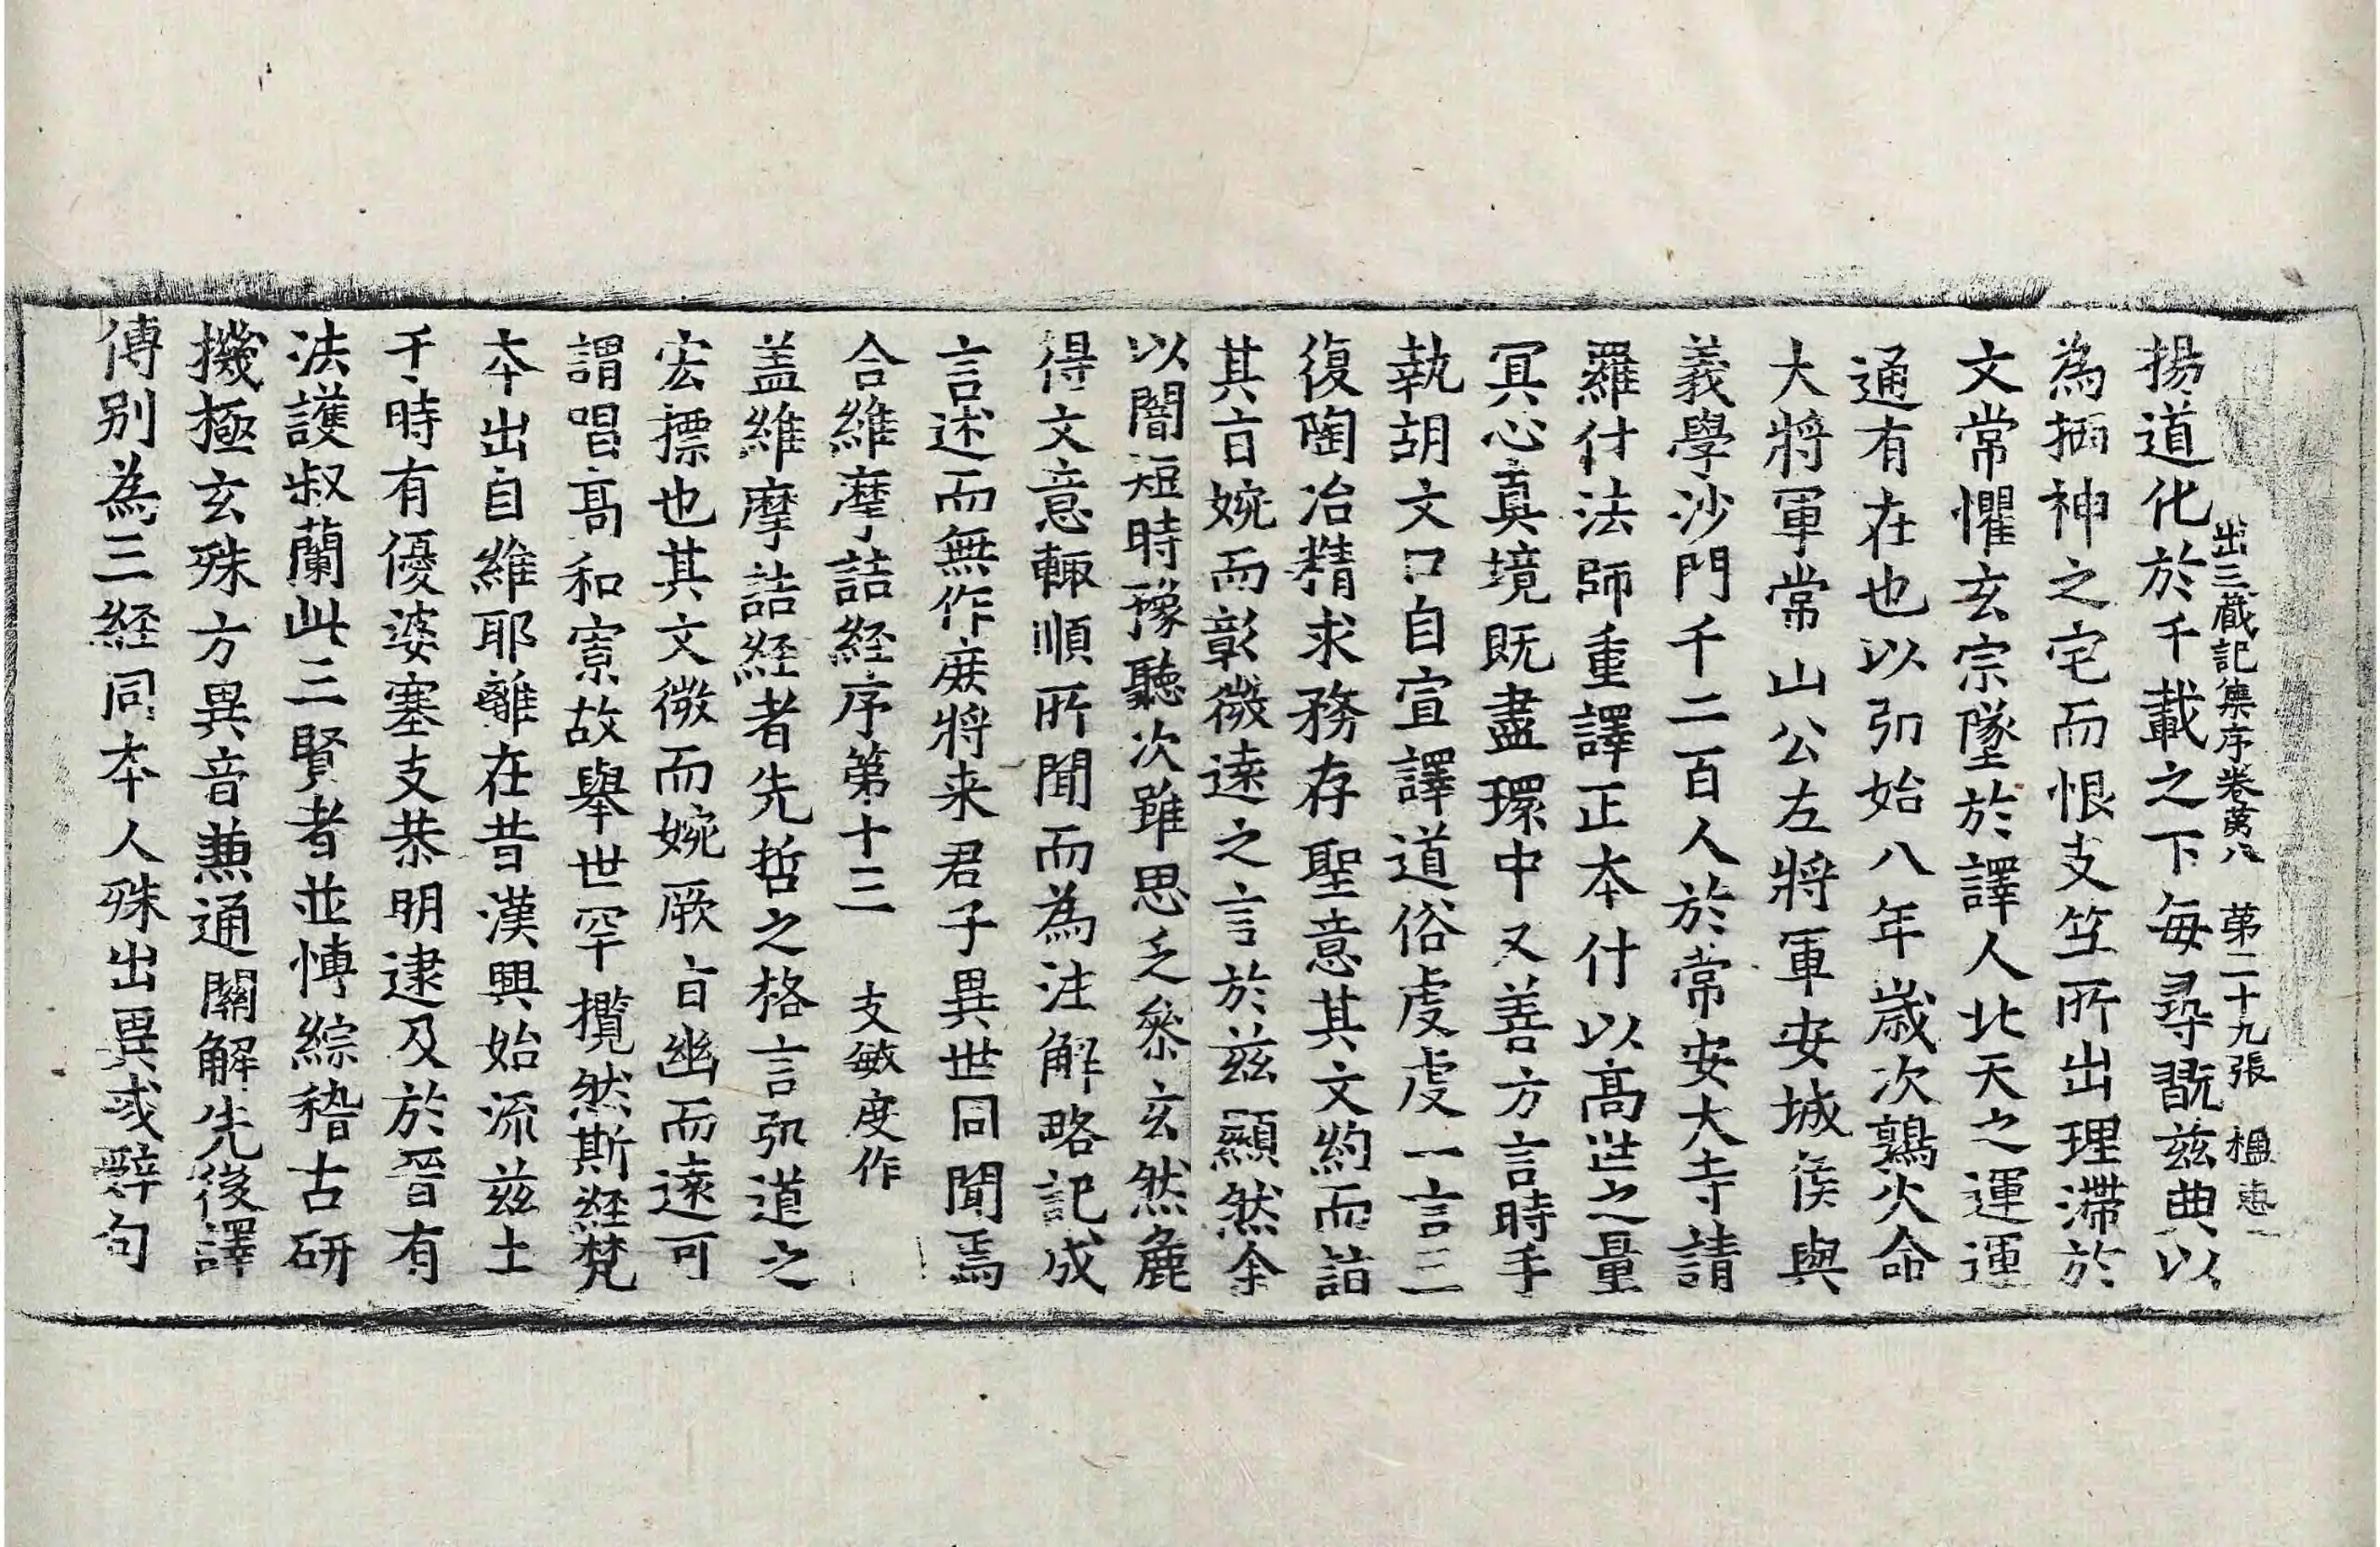 出三藏記集序卷苐八 苐二十九張 楹
揚道化於千載之下每尋翫兹典以
為栖神之宅而恨支竺所出理滯於
文常懼玄宗墜於譯人北天之運運
通有在也以弘始八年歲次鶉火命
大將軍常山公左將軍安城侯與
義學沙門千二百人於常安大寺請
羅什法師重譯正本什以高世之量
冥心真境既盡環中又善方言時手
執胡文口自宣譯道俗虔虔一言三
復陶冶精求務存聖意其文約而詣
其旨婉而彰微遠之言於兹顯然余
以闇短時豫聽次雖思乏參玄然麁
得文意輙順所聞而為注解略記成
言述而無作庻將来君子異世同聞焉
合維摩詰経序第十三 支敏度作
盖維摩詰経者先哲之格言弘道之
宏摽也其文微而婉厥旨幽而遠可
謂唱高和寡故舉世罕攬然斯経梵
本出自維耶離在昔漢興始流兹土
于時有優婆塞支恭明逮及於晉有
法護叔蘭此三賢者並博綜稽古研
機極玄殊方異音兼通關解先後譯
傳別為三経同本人殊出異或辭句